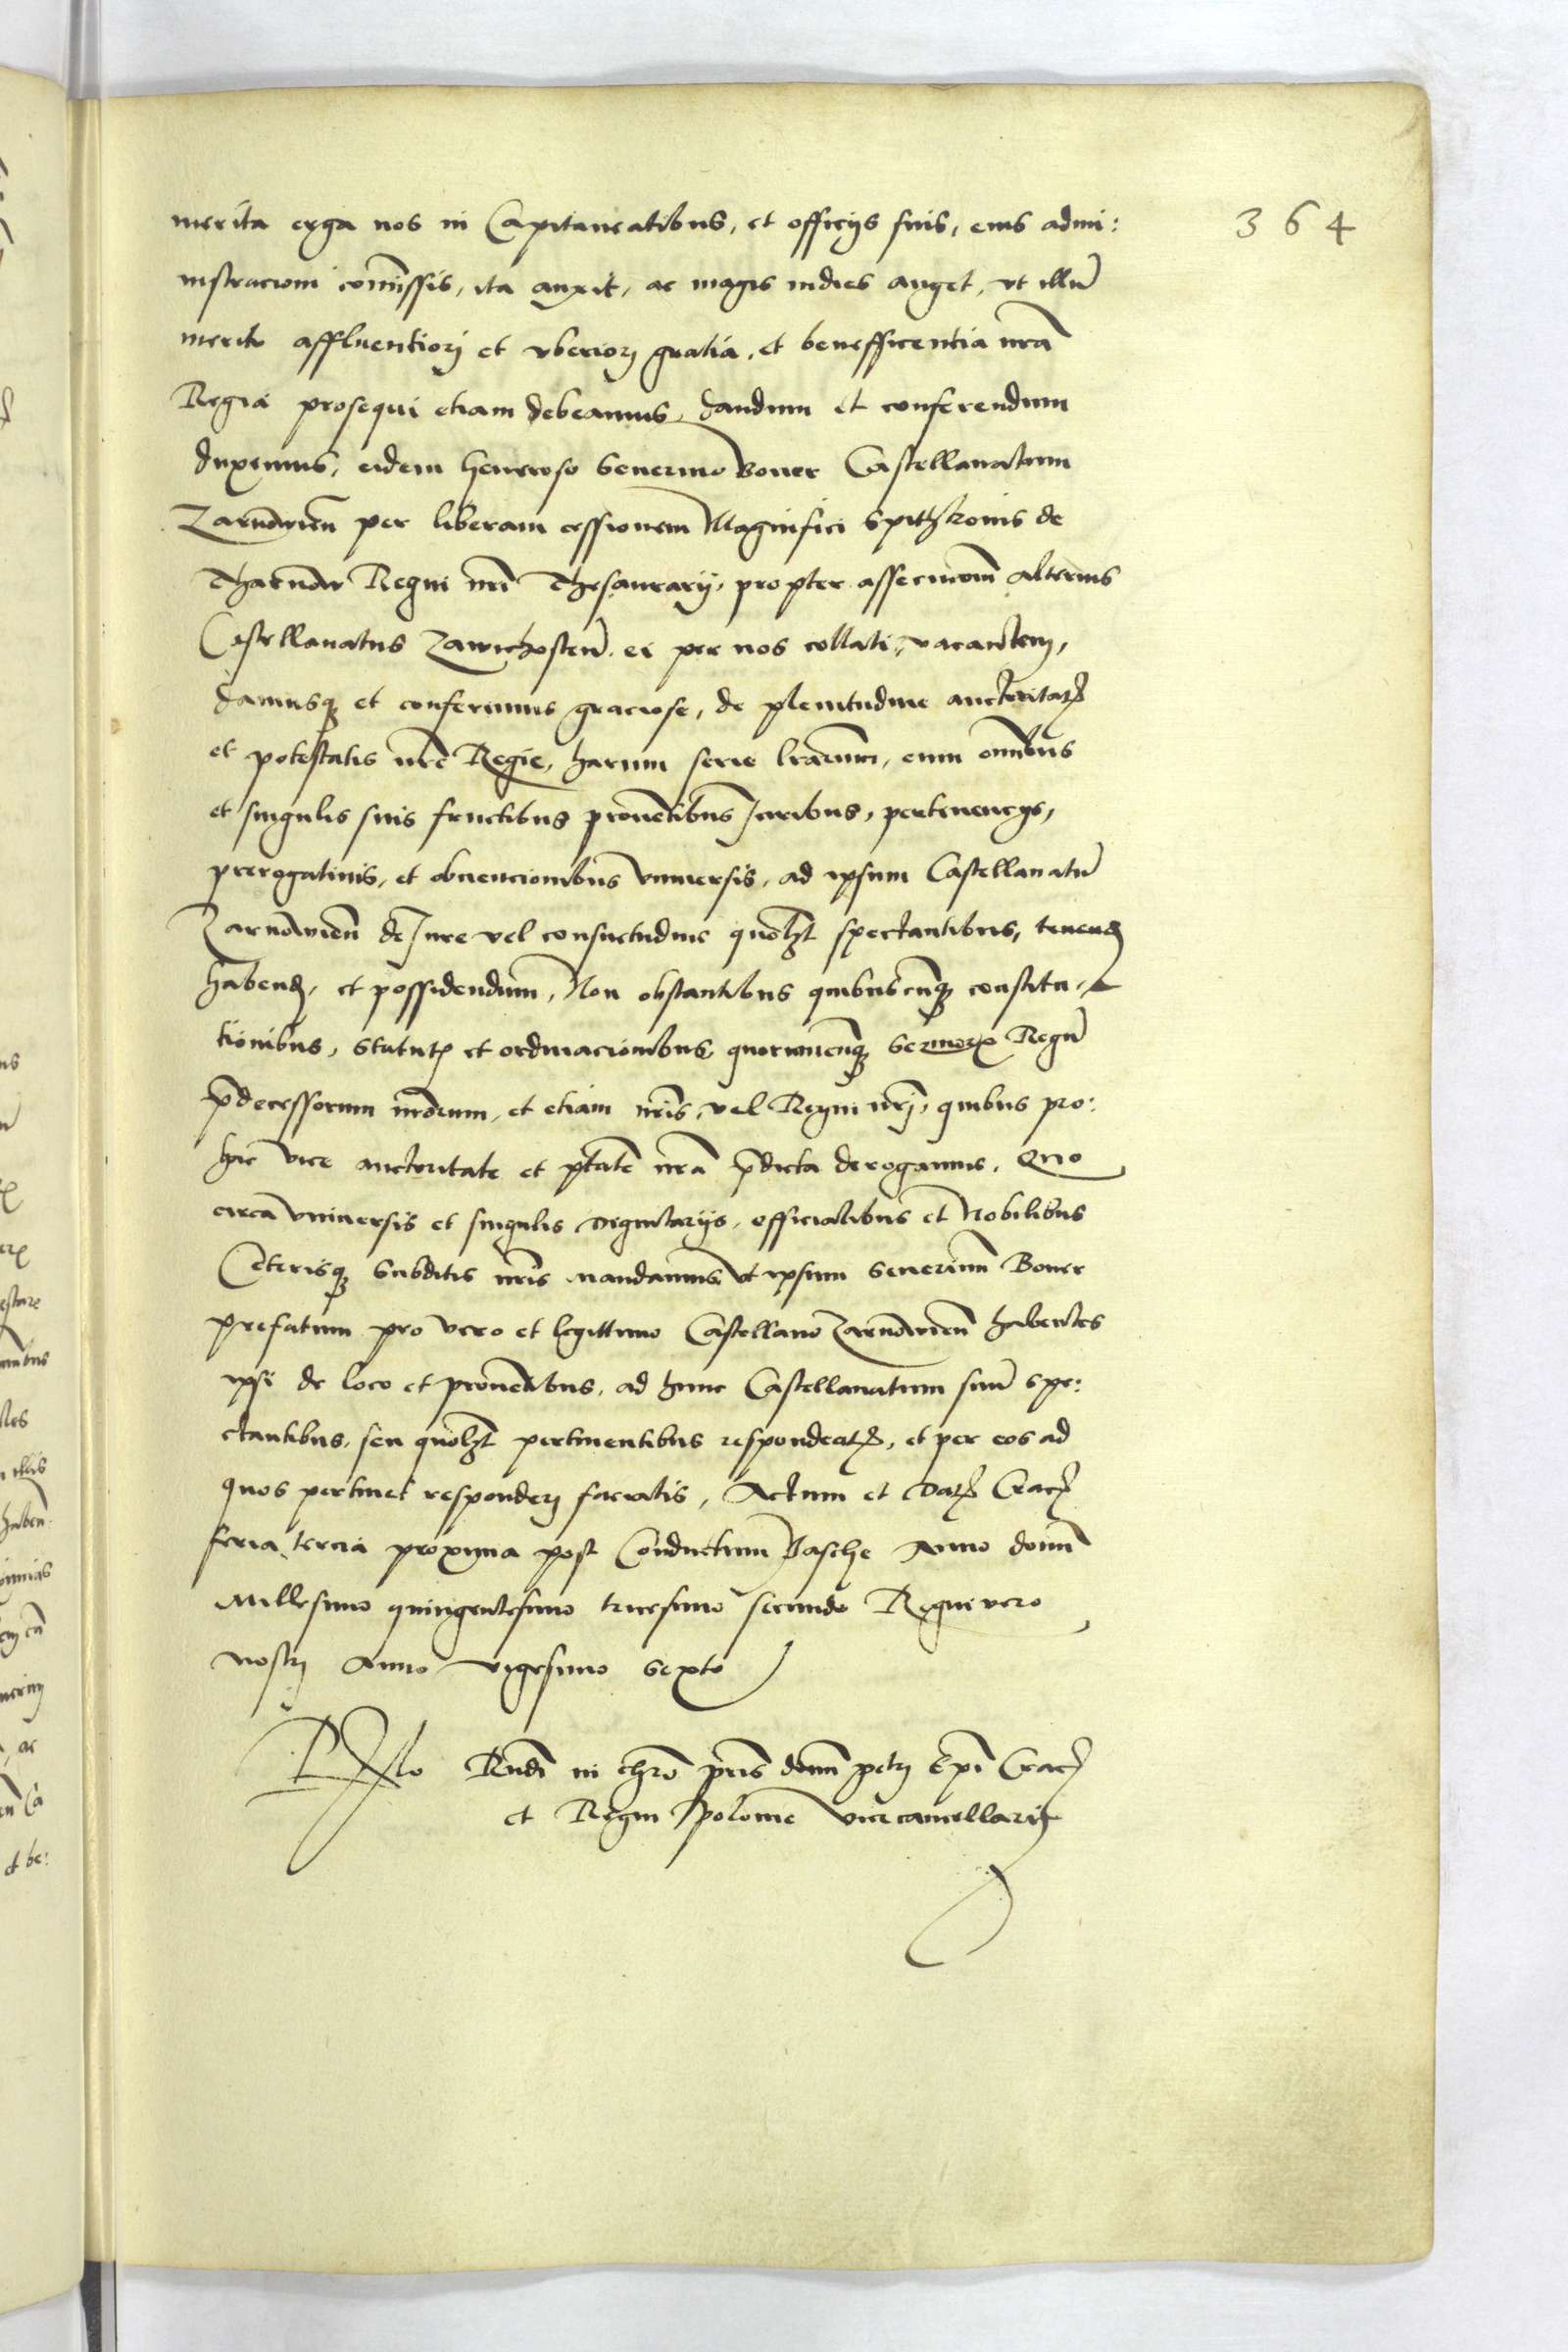 364
merita erga nos in Capitaneatibus, et officijs suis, eius admi:
nistracioni commissis, ita auxit, ac magis indies auget, vt illũ
merito affluentiorj et vberiorj gratia, et benefficentia nrã
Regia prosequi etiam debeamus, dandum et conferendum
duximus, eidem Generoso Seuerino Boner Castellanatum
Zarnowieñ per liberam cessionem Magnifici Spithkonis de
Tharnow Regni nri Thesaurarij, propter assecucionem alterius
Castellanatus Zawichosteñ ei per nos collati, vacantem,
damusq et conferimus graciose, de plenitudine auctoritatis
et potestatis nre Regie, harum serie lrarum, cum omnibus
et singulis suis fructibus prouentibus Juribus, pertinencijs,
prerogatiuis, et obuencionibus vniuersis, ad ipsum Castellanatũ
Zarnowieñ de Jure vel consuetudine quolzt spectantibus, tenend
habend, et possidendum, Non obstantibus quibuscunq constitu-
tionibus, Statutis et ordinacionibus quorumcunq Sermorum Regũ
pdecessorum nrorum, et etiam nris, vel Regni nrj, quibus pro:
hac vice auctoritate et ptate nra pdicta derogamus. Quo
circa vniuersis et singulis dignitarijs, officialibus et Nobilibus
Ceterisq Subditis nris mandamus vt ipsum Seuerinum Boner
prefatum pro vero et legittimo Castellano Zarnowieñ habentes
ipsi de loco et prouentibus, ad hunc Castellanatum suũ spe:
ctantibus, seu quolzt pertinentibus respondeatis, et per eos ad
quos pertinet responderj faciatis, Actum et Datum Crac
feria tercia proxima post Conductum Pasche Anno domi
Millesimo quingentesimo tricesimo secundo Regni vero
nostrj Anno vigesimo sexto
Rlo Rndi in chro pris domi petrj Epi Crac
et Regni Polonie vicecancellarij